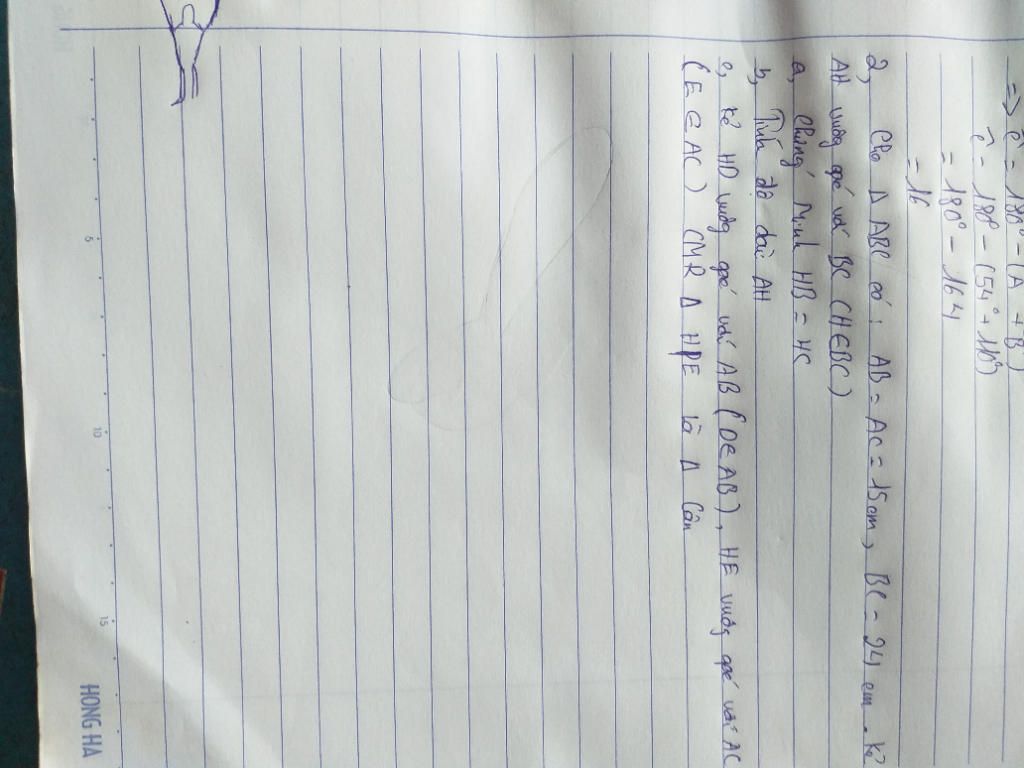 => Ĉ = 180° - (A + B)
Ĉ = 180° - (54° + 110°)
= 180° - 164
= 16
2, Cho Δ ABC có: AB = AC = 15cm, BC = 24 cm. Kẻ
AH vuông góc với BC (H∈BC)
a, Chứng Minh HB = HC
b, Tính độ dài AH
c, Kẻ HD vuông góc với AB (D∈AB), HE vuông góc với AC
(E ∈ AC) CMR Δ HDE là Δ Cân
5
10
15
HONG HA